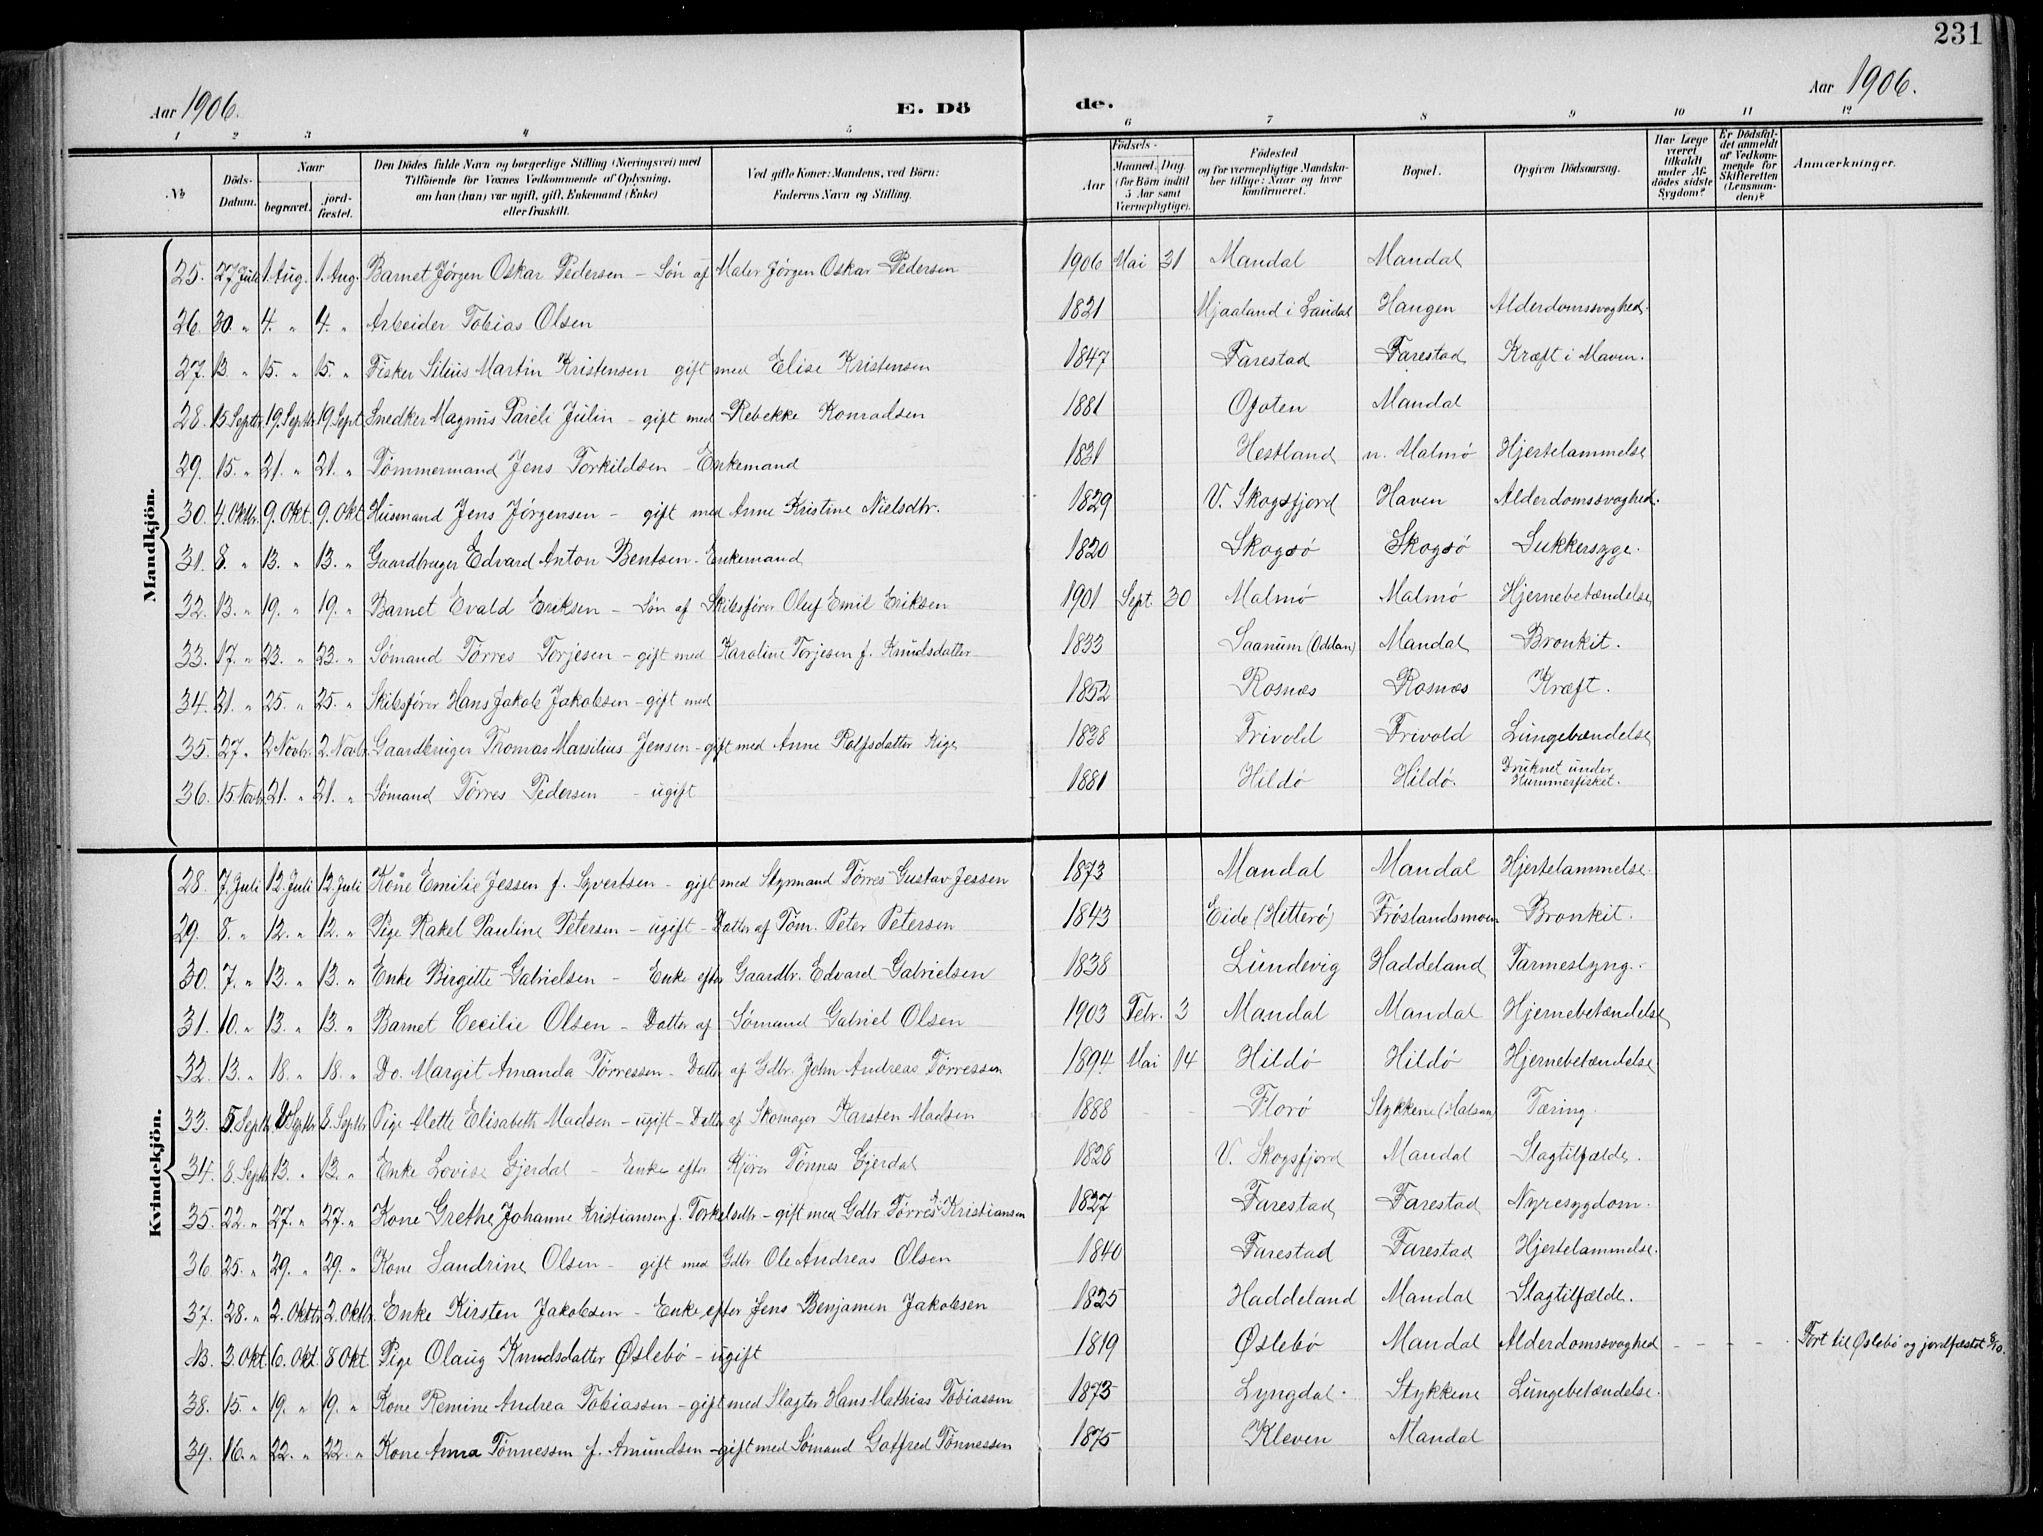 231
Aar 1906. E. Dö de. Aar 1906.
1 2 3 4 5 6 7 8 9 10 11 12
№ Döds-Datum. Naar begravet. jord-fæstet. Den Dödes fulde Navn og borgerlige Stilling (Næringsvei) med Tilföiende for Voxnes Vedkommende af Oplysning, om han (hun) var ugift, gift, Enkemand (Enke) eller fraskilt. Ved gifte Koner: Mandens, ved Börn: Faderens Navn og Stilling. Födsels- Aar Maaned. Dag. (for Börn indtil 5 Aar samt Værnepligtige). Födested og for værnepligtige Mandska-ber tillige: Naar og hvor konfirmeret. Bopæl. Opgiven Dödsaarsag. Har Læge været tilkaldt under Af-dödes sidste Sygdom? Er Dödsfal-det anmeldt af Vedkom-mende for Skifteretten (Lensman-den)? Anmærkninger.
Mandkjön.
25. 27 Juli 1. Aug. 1. Aug. Barnet Jørgen Oskar Pedersen – Søn af Maler Jørgen Oskar Pedersen 1906 Mai 31 Mandal Mandal
26. 30. „ 4. „ 4. „ Arbeider Tobias Olsen 1821 Mjaaland i Laudal Haugen Alderdomssvaghed.
27. 13 „ 15. „ 15. „ Fisker Silius Martin Kristensen gift med Elise Kristensen 1847 Farestad Farestad Kræft i Maven.
28. 15 Septbr. 19. Septbr. 19. Sept. Snedker Magnus Pareli Julin – gift med Rebekke Konradsen 1881 Ofoten Mandal
29. 15. „ 21. „ 21. „ Tømmermand Jens Torkildsen – Enkemand 1821 Hestland n. Malmø Hjertelammelse
30. 4. Oktbr. 9. Okt. 9. Okt. Husmand Jens Jørgensen – gift med Anne Kristine Nielsdtr. 1829 V. Skogsfjord Haven Alderdomssvaghed.
31. 8. „ 13. „ 13. „ Gaardbruger Edvard Anton Bentsen. Enkemand 1820 Skogsø Skogsø Sukkersyge.
32. 13. „ 19. „ 19. „ Barnet Evald Eriksen – Søn af Skibsfører Oluf Emil Eriksen 1901 Sept. 30 Malmø Malmø Hjernebetændelse
33. 17. „ 23. „ 23. „ Sømand Tørres Torjesen – gift med Karoline Torjesen f. Knudsdatter 1833 Saanum (Oddan) Mandal Bronkit.
34. 21. „ 25. „ 25. „ Skibsfører Hans Jakob Jakobsen – gift med 1852 Rosnæs Rosnæs Kræft.
35. 27. „ 2 Novbr. 2. Novbr. Gaardbruger Thomas Marsilius Jensen – gift med Anne Rolfsdatter Kige 1828 Frivold Frivold Lungebændelse
36. 15. Novbr. 21. „ 21. „ Sømand Tørres Pedersen – ugift 1881 Hildø Hildø. Druknet under Hummerfisket.
Kvindekjön.
28. 7. Juli 12. Juli 12. Juli Kone Emilie Jessen f. Syvertsen – gift med Styrmand Tørres Gustav Jessen 1873 Mandal Mandal Hjertelammelse.
29. 8. „ 12. „ 12. „ Pige Rakel Pauline Petersen – ugift – Datter af Tøm. Peter Petersen 1843 Eide (Hitterø) Frøslandsmoen Bronkit.
30. 7. „ 13. „ 13. „ Enke Birgitte Gabrielsen – Enke efter Gaardbr. Edvard Gabrielsen 1838 Lundevig Haddeland Tarmeslyng.
31. 10. „ 13. „ 13. „ Barnet Cecilie Olsen – Datter af Sømand Gabriel Olsen 1903 Febr. 3 Mandal Mandal Hjernebetændelse
32. 13. „ 18. „ 18. „ Do. Margit Amanda Tørressen – Datter af Gdbr. John Andreas Tørressen 1894 Mai 14 Hildø Hildø Hjernebetændelse
33. 5 Septbr. 8 Septbr. 8. Septbr. Pige Mette Elisabeth Madsen – ugift – Datter af Skomager Karsten Madsen 1888 Florø Stykkene (Halsaa) Tæring.
34. 8. Septbr. 13. „ 13. „ Enke Lovise Gjerdal – Enke efter Kjører Tønnes Gjerdal 1828 V. Skogsfjord Mandal Slagtilfælde.
35. 22. „ 27. „ 27. „ Kone Grethe Johanne Kristiansen f. Torkelsdtr – gift med Gdbr. Tørres Kristiansen 1827 Farestad Farestad Nyresygdom.
36. 25. „ 29. „ 29. „ Kone Sandrine Olsen – gift med Gdbr Ole Andreas Olsen 1840 Farestad Farestad Hjertelammelse.
37. 28. „ 2. Oktbr. 2. Oktbr. Enke Kirsten Jakobsen – Enke efter Jens Benjamin Jakobsen 1825 Haddeland Mandal Slagtilfælde.
NB. 3. Okt. 6. Okt 8 Okt. Pige Olaug Knudsdatter Øslebø – ugift 1819 Øslebø Mandal Alderdomssvaghed – – – Ført til Øslebø og jordfæstet 8/10.
38. 15. „ 19. „ 19. „ Kone Remine Andrea Tobiassen – gift med Slagter Hans Mathias Tobiassen 1873 Lyngdal. Stykkene Lungebetændelse.
39. 16. „ 22. „ 22. „ Kone Anna Tønnessen f. Amundsen – gift med Sømand Gotfred Tønnessen 1875 Kleven Mandal